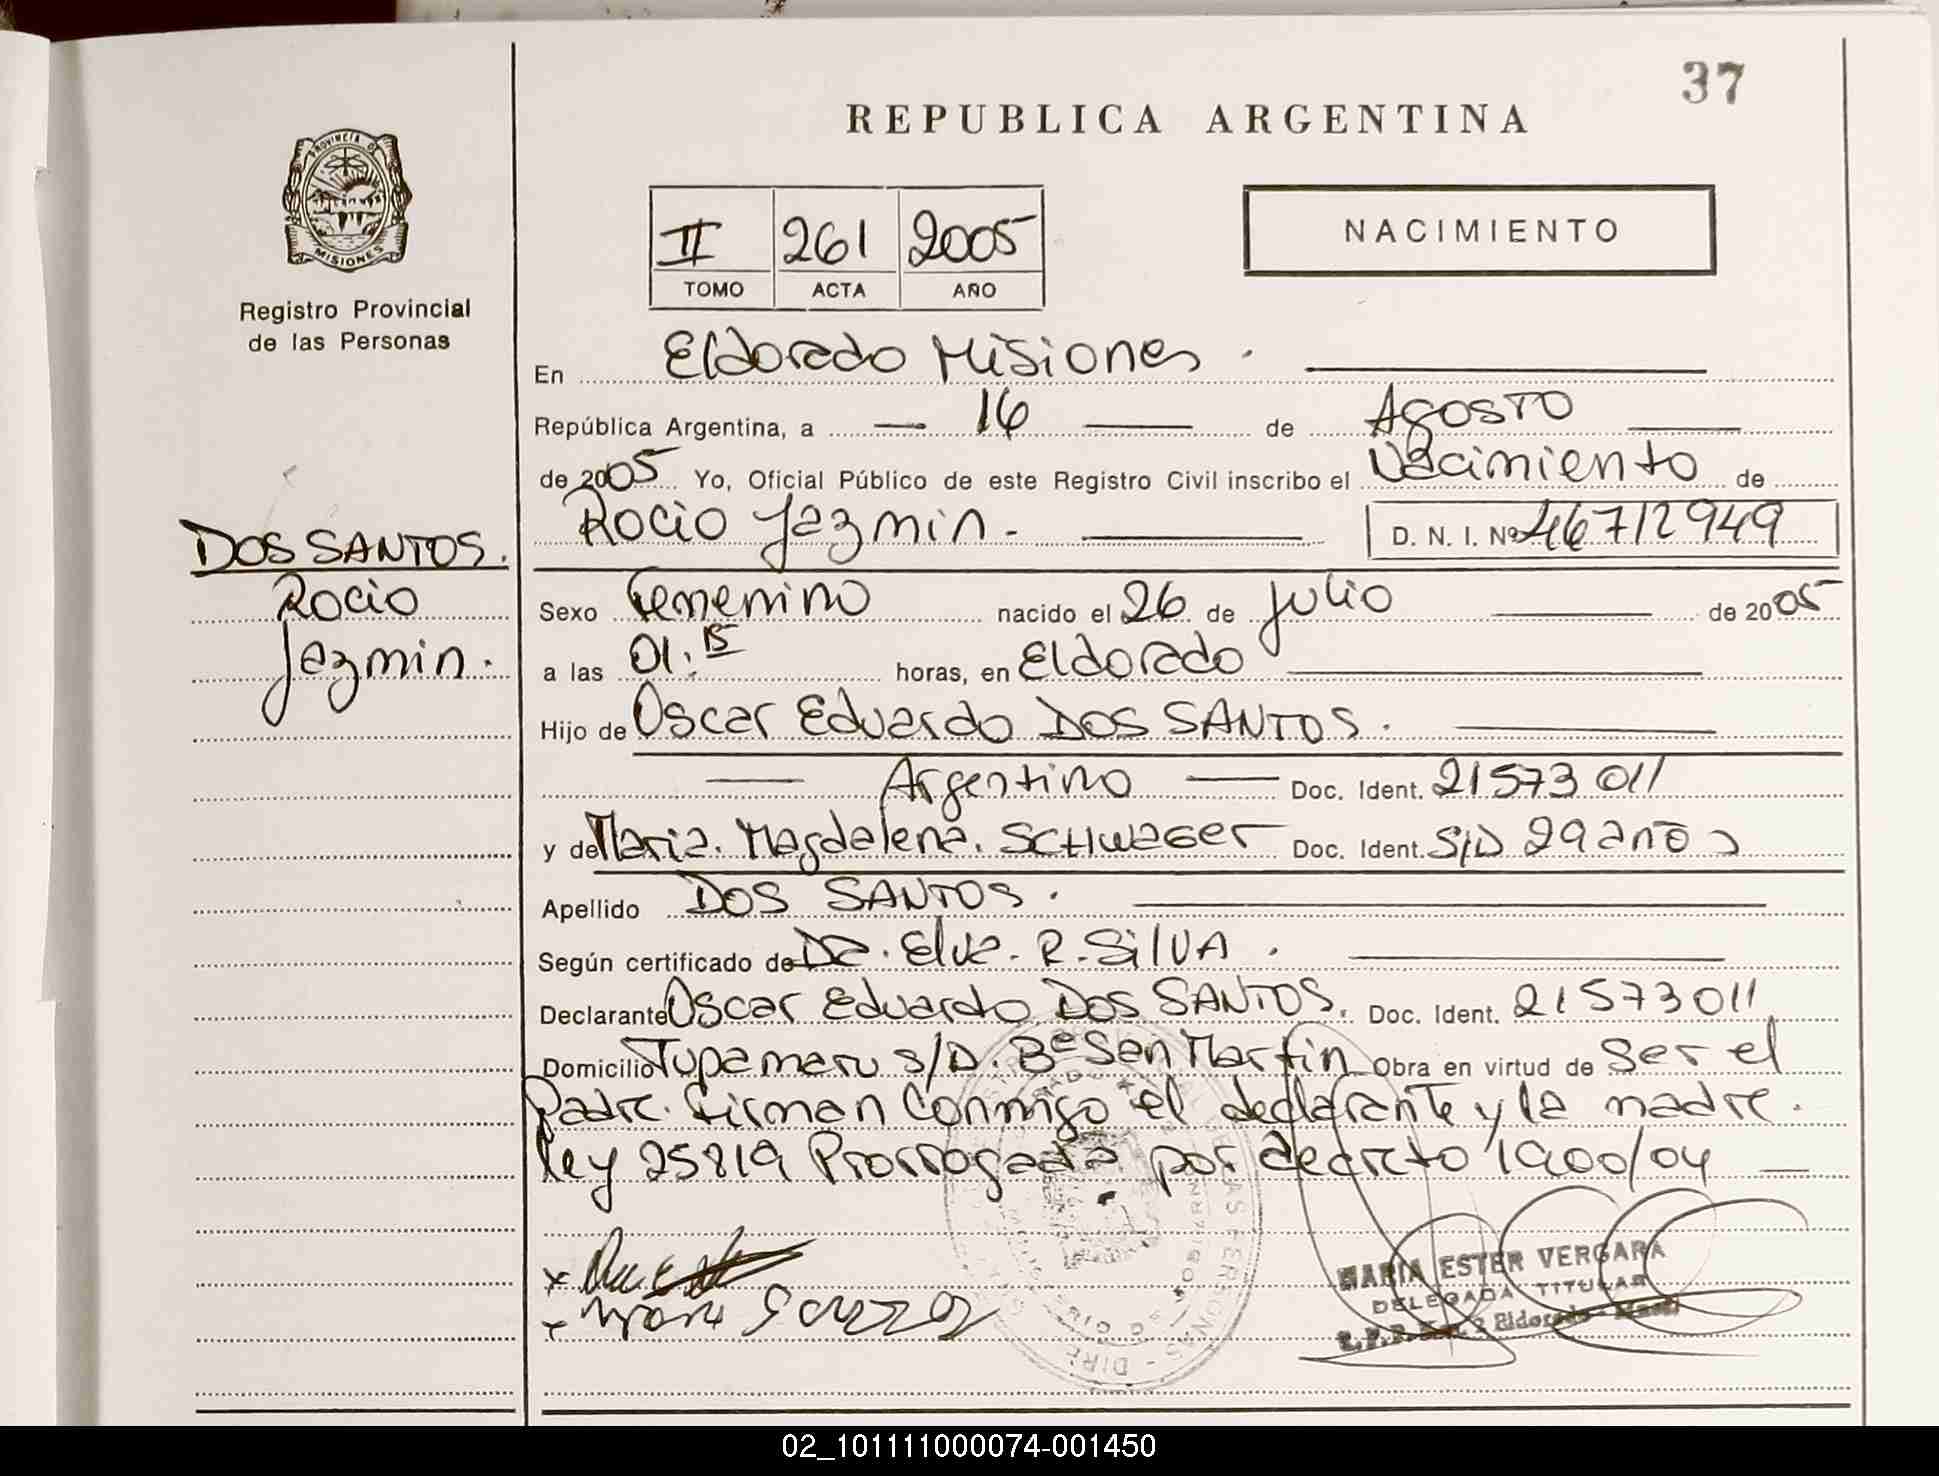 37
REPUBLICA ARGENTINA
PROVINCIA DE
MISIONES
Registro Provincial
de las Personas
II 261 2005
TOMO ACTA AÑO
NACIMIENTO
En Eldorado Misiones.
República Argentina, a 16 de Agosto
de 2005 Yo, Oficial Público de este Registro Civil inscribo el Nacimiento de
Rocio Jazmin. D. N. I. Nº 46712949
DOS SANTOS.
Rocio
Jazmin.
Sexo Femenino nacido el 26 de Julio de 2005
a las 01:15 horas, en Eldorado
Hijo de Oscar Eduardo DOS SANTOS.
Argentino Doc. Ident. 21573011
y de Maria. Magdalena. SCHWAGER Doc. Ident. S/D 29 años
Apellido DOS SANTOS.
Según certificado de Da. Elva. R. SILVA.
Declarante Oscar Eduardo DOS SANTOS. Doc. Ident. 21573011
Domicilio Tupamaru s/D. Bº San Martin Obra en virtud de Ser el
Padre. Firman Conmigo el declarante y la madre.
Ley 25819 Prorrogada por decreto 1900/04
MARIA ESTER VERGARA
DELEGADA TITULAR
Eldorado
02_101111000074-001450